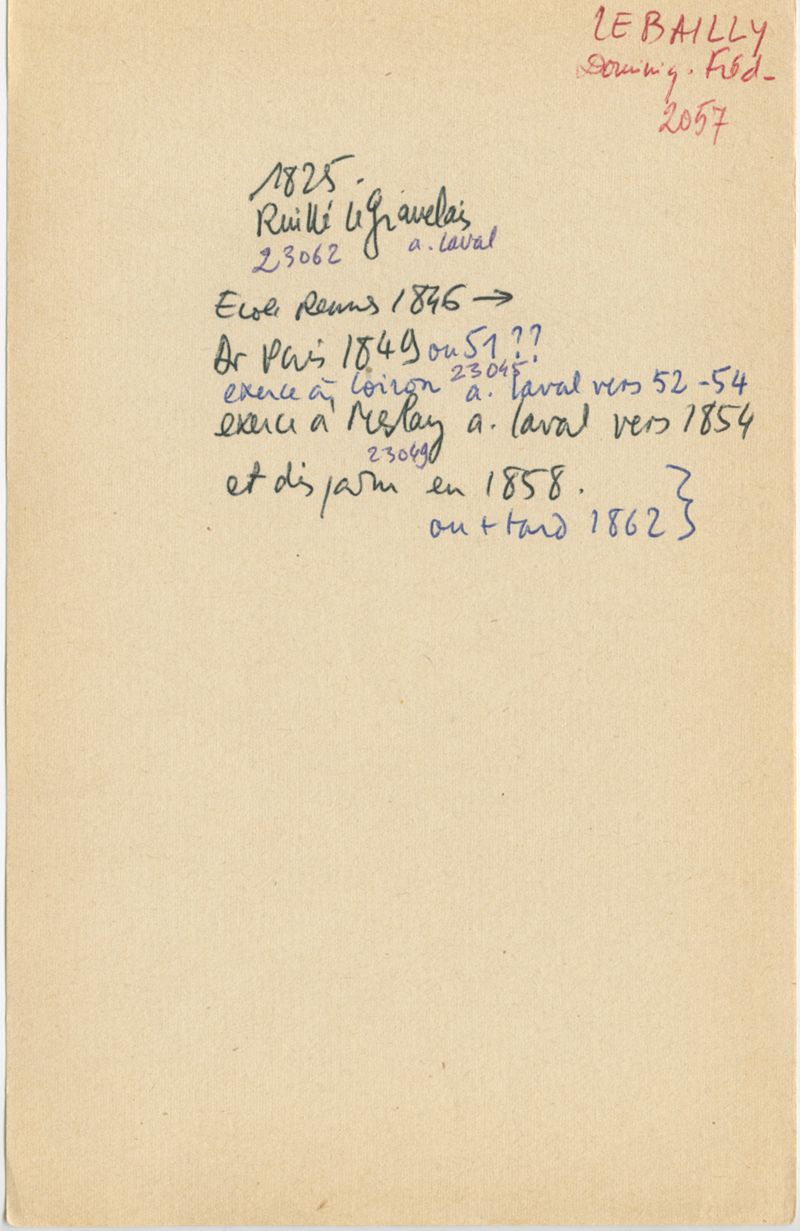 LEBAILLY
Dominiq. Fréd-
2057
1825.
Ruillé le Gravelais
23062 a. Laval
Ecole Rennes 1846 →
Dr Paris 1849 ou 51 ??
23045
exerce à Loiron a. Laval vers 52-54
exerce à Meslay a. Laval vers 1854
23049
et disparu en 1858. }
ou + tard 1862 }